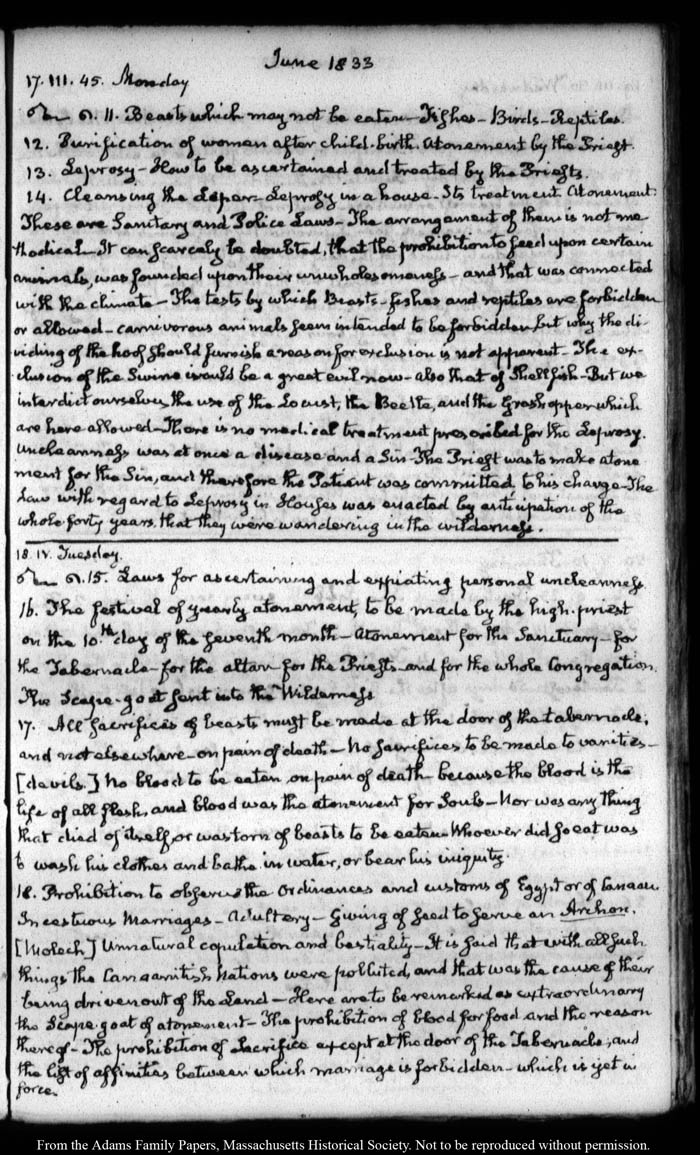 June 1833
17. III. 45. Monday
11. Beasts which may not be eaten — Fishes — Birds — Reptiles.
12. Purification of women after child-birth. Atonement by the Priest.
13. Leprosy — How to be ascertained and treated by the Priests.
14. Cleansing the Leper — Leprosy in a house. Its treatment Atonement.
These are Sanitary and Police Laws — The arrangement of them is not me-
thodical — It can scarcely be doubted, that the prohibition to feed upon certain
animals, was founded upon their unwholesomeness — and that was connected
with the climate — The tests by which Beasts — fishes and reptiles are forbidden
or allowed — carnivorous animals seem intended to be forbidden, but why the di-
viding of the hoof should furnish a reason for exclusion is not apparent — The ex-
clusion of the Swine would be a great evil now — also that of Shellfish — But we
interdict ourselves the use of the Locust, the Beetle, and the Grasshopper which
are here allowed — There is no medical treatment prescribed for the Leprosy.
Uncleanness was at once a disease and a Sin — The Priest was to make atone-
ment for the Sin, and therefore the Patient was committed to his charge — The
Law with regard to Leprosy in Houses was enacted by anticipation of the
whole forty years that they were wandering in the wilderness.
18. IV. Tuesday.
15. Laws for ascertaining and expiating personal uncleanness
16. The festival of yearly atonement, to be made by the high-priest
on the 10th day of the seventh month — Atonement for the Sanctuary — for
the Tabernacle — for the altar — for the Priests — and for the whole Congregation.
The Scape-goat sent into the Wilderness
17. All sacrifices of beasts must be made at the door of the tabernacle;
and not elsewhere — on pain of death — No sacrifices to be made to vanities —
[devils.] No blood to be eaten, on pain of death — because the blood is the
life of all flesh, and blood was the atonement for Souls — Nor was any thing
that died of itself, or was torn of beasts to be eaten — Whoever did so eat was
to wash his clothes and bathe in water, or bear his iniquity.
18. Prohibition to observe the Ordinances and customs of Egypt or of Canaan.
Incestuous Marriages — Adultery — Giving of seed to serve an Archon.
[Molech] Unnatural copulation and bestiality — It is said that with all such
things the Canaanitish Nations were polluted, and that was the cause of their
being driven out of the Land — Here are to be remarked as extraordinary
the Scape-goat of atonement — The prohibition of blood for food and the reason
thereof — The prohibition of Sacrifice except at the door of the Tabernacle; and
the list of affinities between which marriage is forbidden — which is yet in
force.
From the Adams Family Papers, Massachusetts Historical Society. Not to be reproduced without permission.